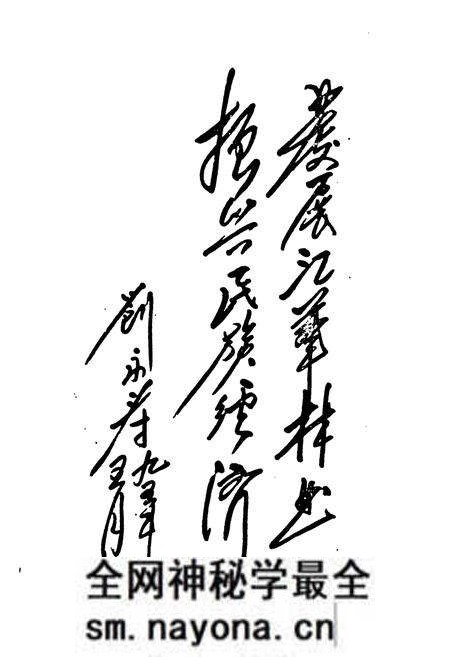 發展江華林业
振兴民族經济
劉永 九五年
五月
全网神秘学最全
sm.nayona.cn